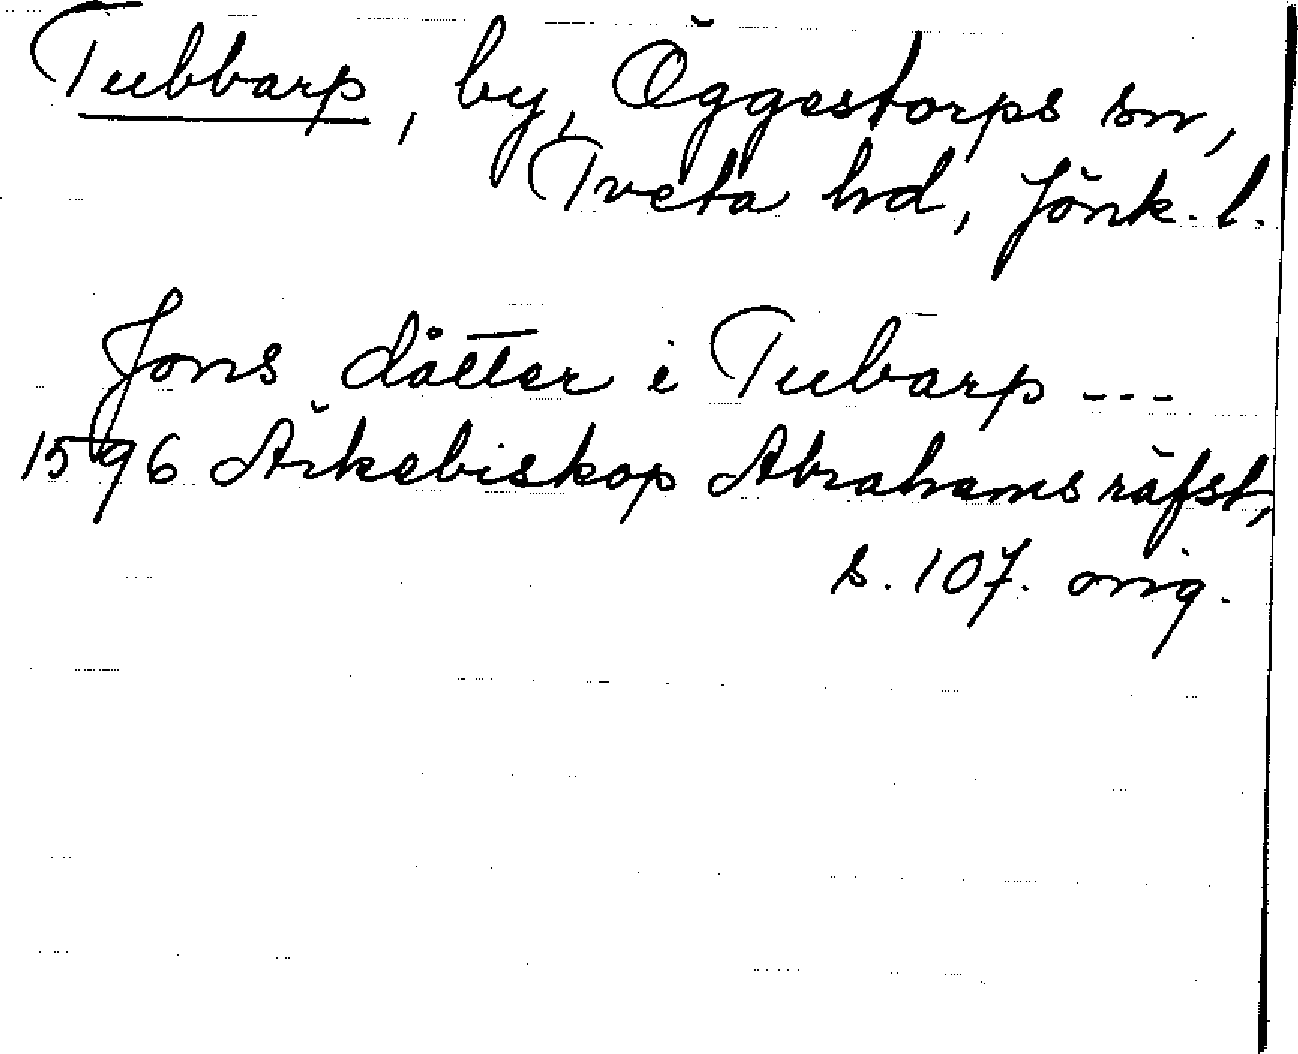 Tubbarp, by, Öggestorps sn,
Tveta hd, Jönk. l.
Jons dåtter i Tubarp ---
1596 Ärkebiskop Abrahams räfst,
s. 107. orig.